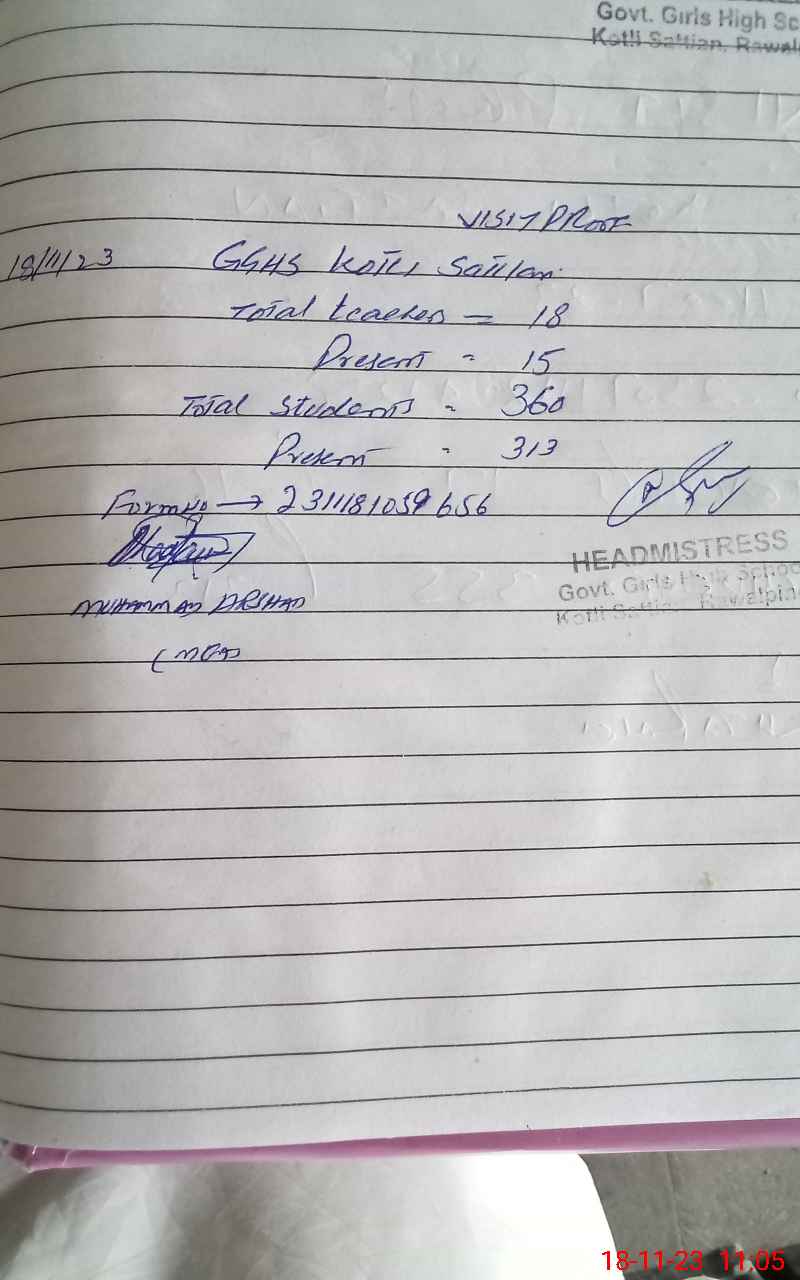 Govt. Girls High Sc
Kotli Sattian, Rawal
VISIT PROOF
18/11/23 GGHS Kotli Sattian.
Total teachers = 18
Present = 15
Total Students = 360
Present = 313
Form No → 2311181059656
MUHAMMAD ARSHAD
(MEA)
HEADMISTRESS
Govt. Girls High School
Kotli Sattian, Rawalpin
18-11-23 11:05